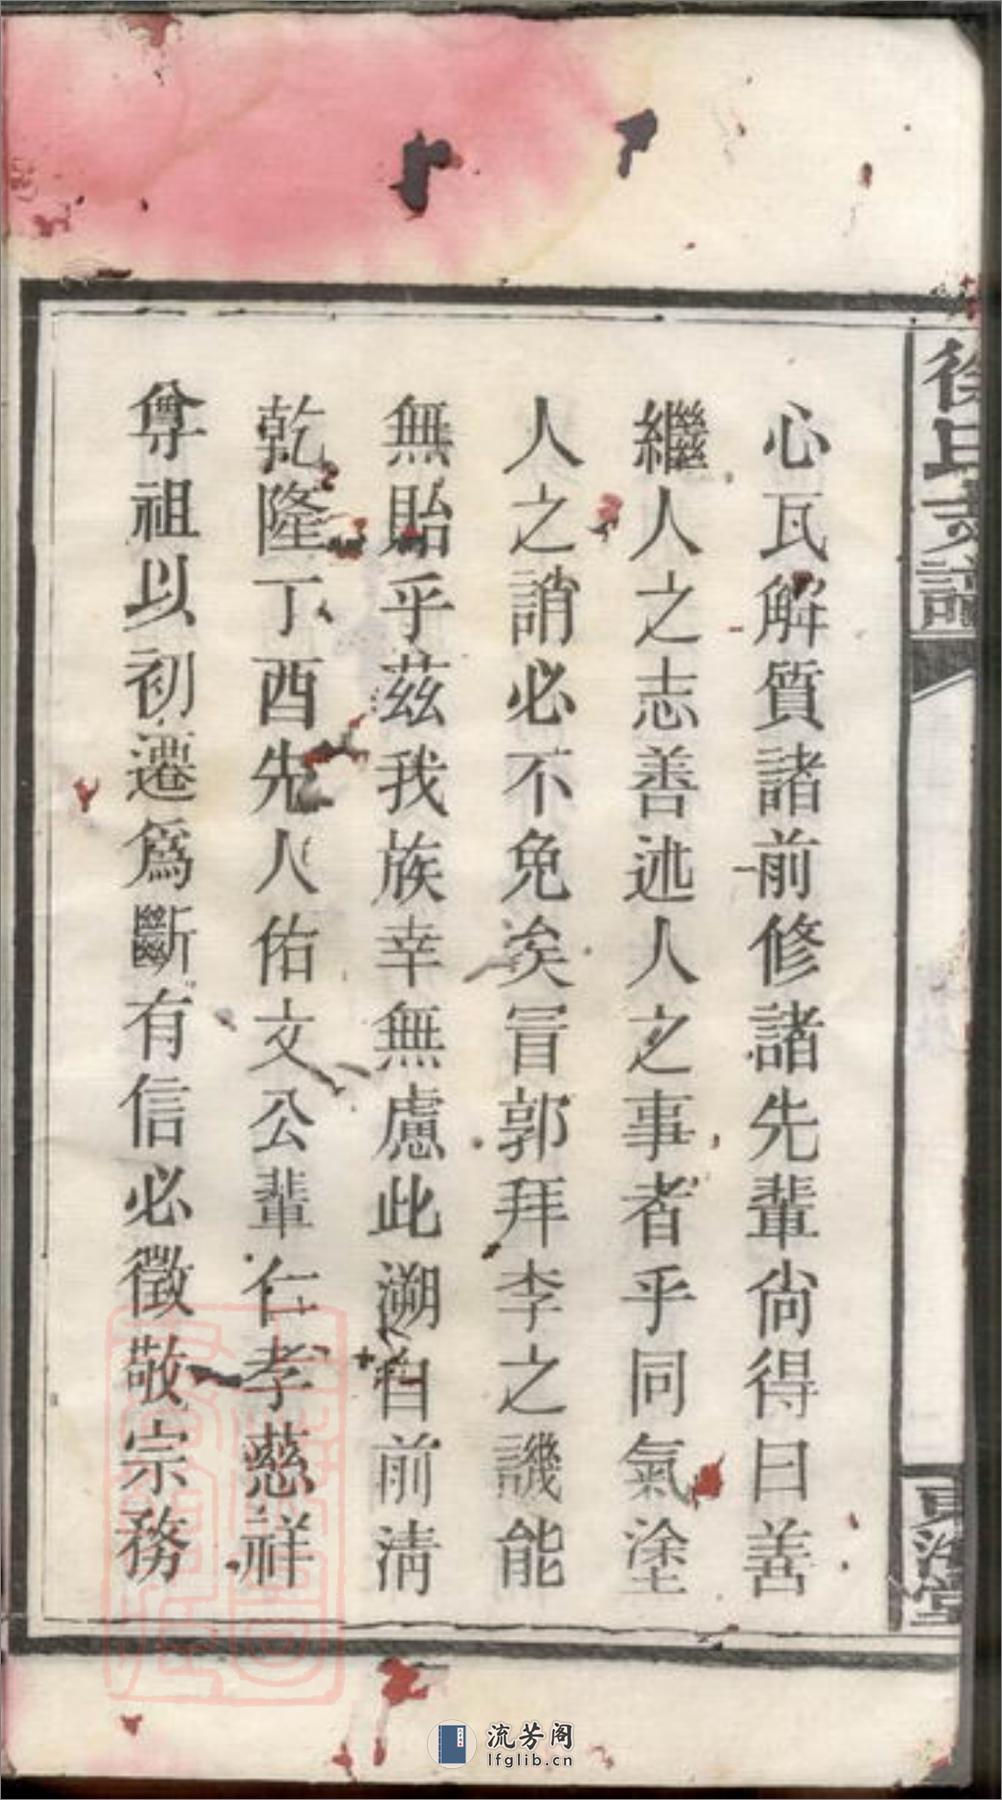 徐氏支譜
心瓦解質諸前修諸先輩尙得曰善
繼人之志善述人之事者乎同氣塗
人之誚必不免矣冒郭拜李之譏能
無貽乎茲我族幸無慮此溯自前淸
乾隆丁酉先人佑文公輩仁孝慈祥
尊祖以初遷爲斷有信必徵敬宗務
流芳阁
lfglib.cn